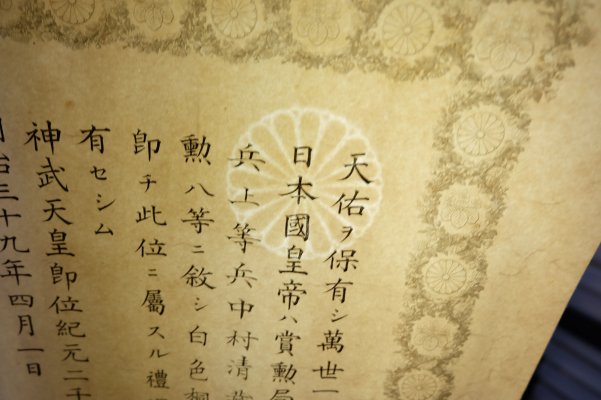 天佑ヲ保有シ萬世一
日本國皇帝ハ賞勲局
兵上等兵中村清
勲八等ニ敘シ白色桐
卽チ此位ニ屬スル禮
有セシム
神武天皇卽位紀元二千
治三十九年四月一日